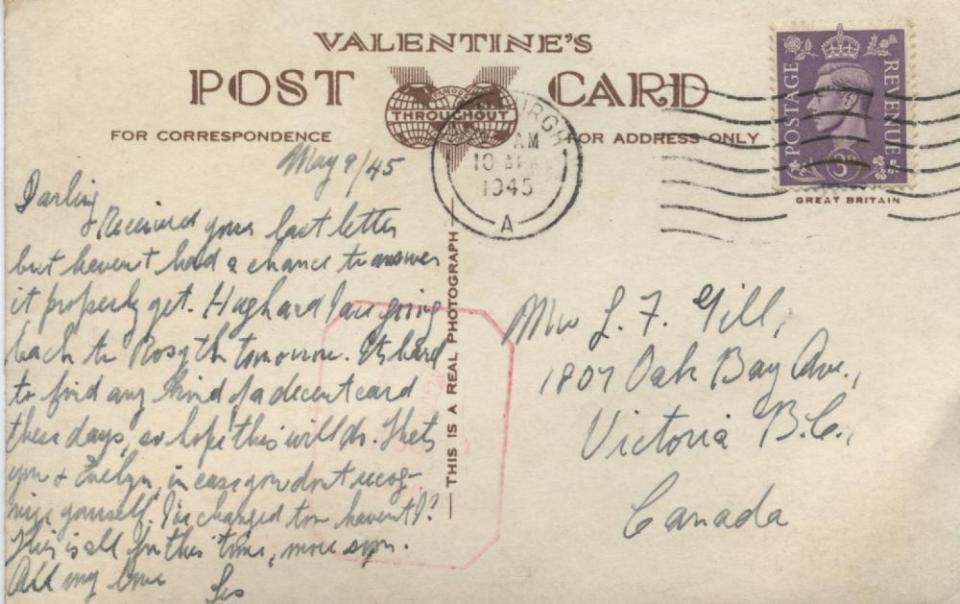 VALENTINE'S
POST CARD
THROUGHOUT
FOR CORRESPONDENCE
FOR ADDRESS ONLY
May 9/45
Darling
Received your last letter
but haven't had a chance to answer
it properly yet. Hugh and I are going
back to Rosyth tomorrow. It's hard
to find any kind of a decent card
these days, so hope this will do. That's
you & Evelyn, in case you don't recog-
nize yourself. I've changed too haven't I?
This is all for this time, more soon.
All my love
Les
THIS IS A REAL PHOTOGRAPH
AM
10
1945
A
POSTAGE
REVENUE
3D
GREAT BRITAIN
L. F. Gill,
1807 Oak Bay Ave.,
Victoria B.C.,
Canada